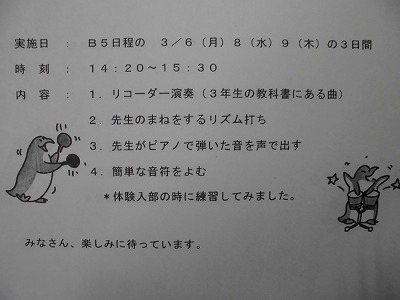 実施日 : B5日程の 3/6(月)8(水)9(木)の3日間
時 刻 : 14:20~15:30
内 容 : 1.リコーダー演奏(3年生の教科書にある曲)
2.先生のまねをするリズム打ち
3.先生がピアノで弾いた音を声で出す
4.簡単な音符をよむ
*体験入部の時に練習してみました。
みなさん、楽しみに待っています。